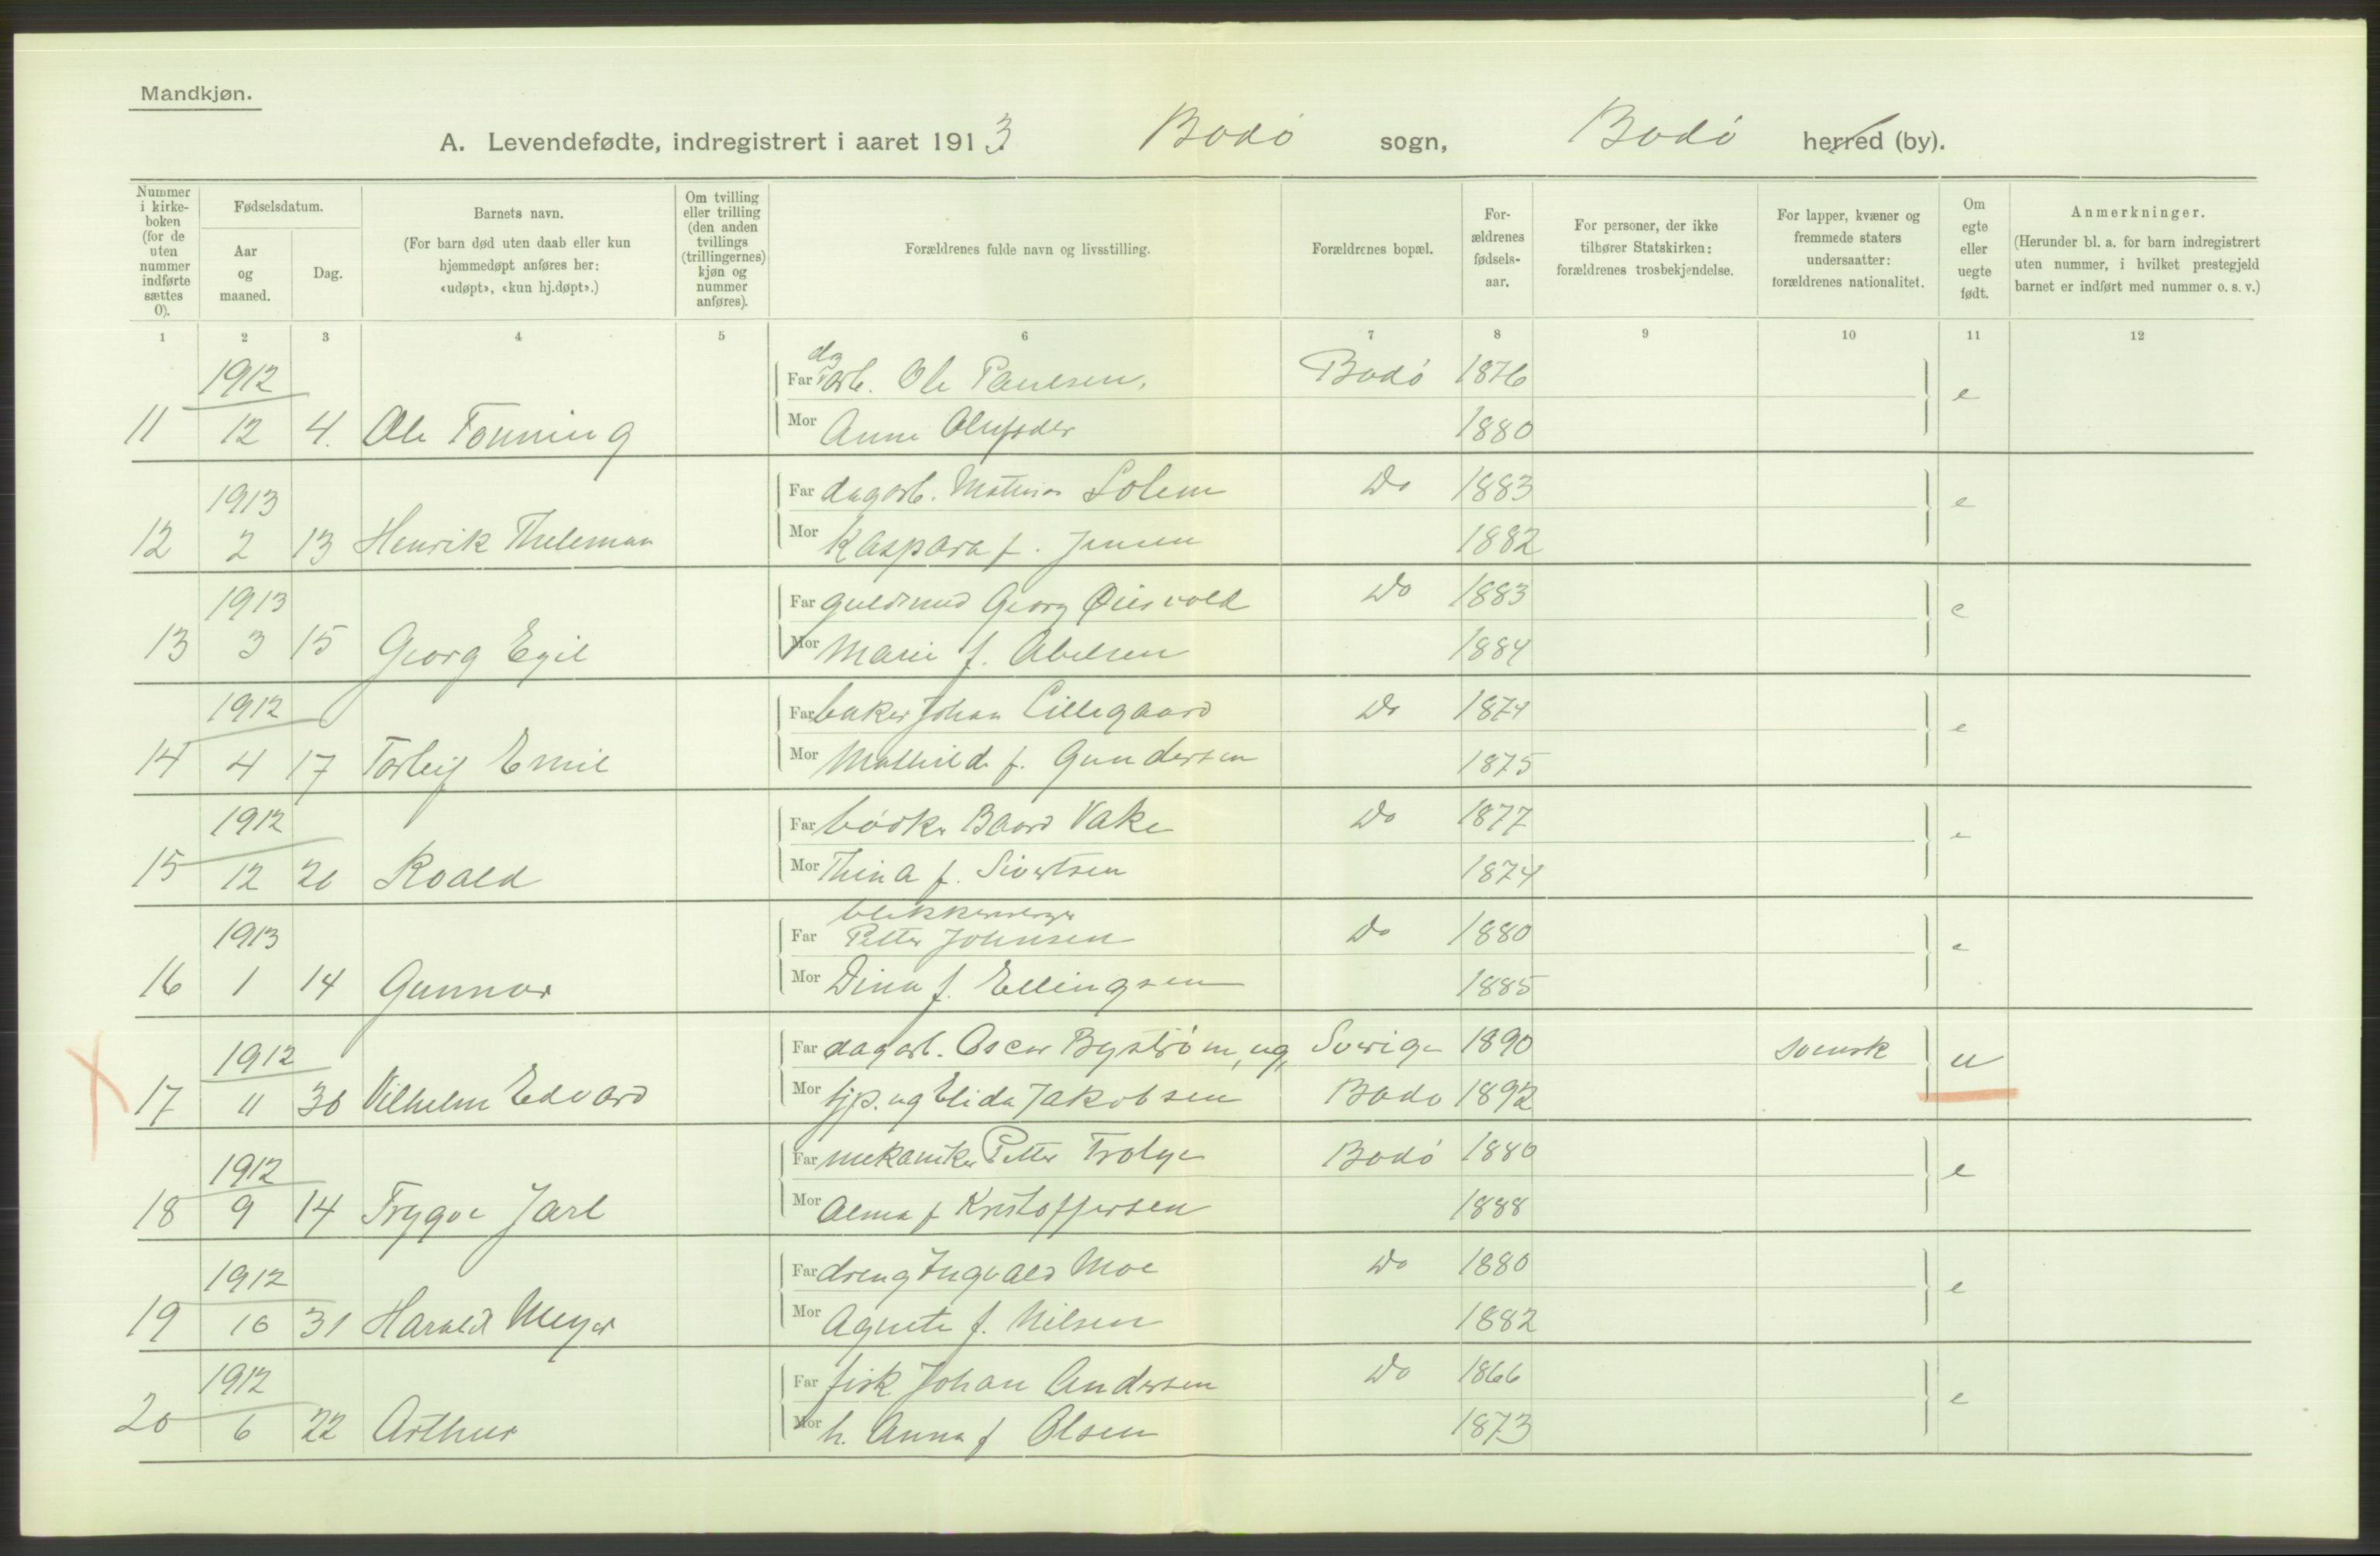 Mandkjøn.
A. Levendefødte, indregistrert i aaret 1913. Bodó sogn, Bodó herred (by).
Nummer i kirke-boken (for de uten nummer indførte sættes 0).
Fødselsdatum.
Aar og maaned.
Dag.
Barnets navn.
(For barn død uten daab eller kun hjemmedøpt anføres her: «udøpt», «kun hj.døpt».)
Om tvilling eller trilling (den anden tvillings (trillingernes) kjøn og nummer anføres).
Forældrenes fulde navn og livsstilling.
Forældrenes bopæl.
For-ældrenes fødsels-aar.
For personer, der ikke tilhører Statskirken: forældrenes trosbekjendelse.
For lapper, kvæner og fremmede staters undersaatter: forældrenes nationalitet.
Om egte eller uegte født.
Anmerkninger.
(Herunder bl. a. for barn indregistrert uten nummer, i hvilket prestegjeld barnet er indført med nummer o. s. v.)
1 2 3 4 5 6 7 8 9 10 11 12
1912 Far dagarb. Ole Paulsen, Bodó 1876 e
11 12 4. Ole Tonning Mor Anna 1880
1913 Far dagarb. Mathias Solem Do 1883 e
12 2 13 Henrik Theleman Mor Kaspara f. Jensen 1882
1913 Far guldsmed Georg Do 1883 e
13 3 15 Georg Egil Mor Marie f. Abelsen 1884
1912 Far baker Johan Lillegaard Do 1874 e
14 4 17 Torleif Emil Mor Mathilde f. Gundersen 1875
1912 Far bódker Baard Vake Do 1877 e
15 12 20 Roald Mor Thina f. Sivertsen 1874
1913 blikkenslager
Far Petter Johnsen Do 1880 e
16 1 14 Gunnar Mor Dina f. Ellingsen 1885
1912 Far dagarb. Oscar Bystróm, ug, Sverige 1890 svensk u
17 11 30 Vilhelm Edvard Mor tjp. ug Elida Jakobsen Bodo 1892
1912 Far mekaniker Petter Bodó 1880 e
18 9 14 Trygve Jarl Mor Alma f Kristoffersen 1888
1912 Far dreng Ingvald Moe Do 1880 e
19 10 31 Harald Meyer Mor Agnete f. Nilsen 1882
1912 Far fisk. Johan Andersen Do 1866 e
20 6 22 Arthur Mor h. Anna f Olsen 1873